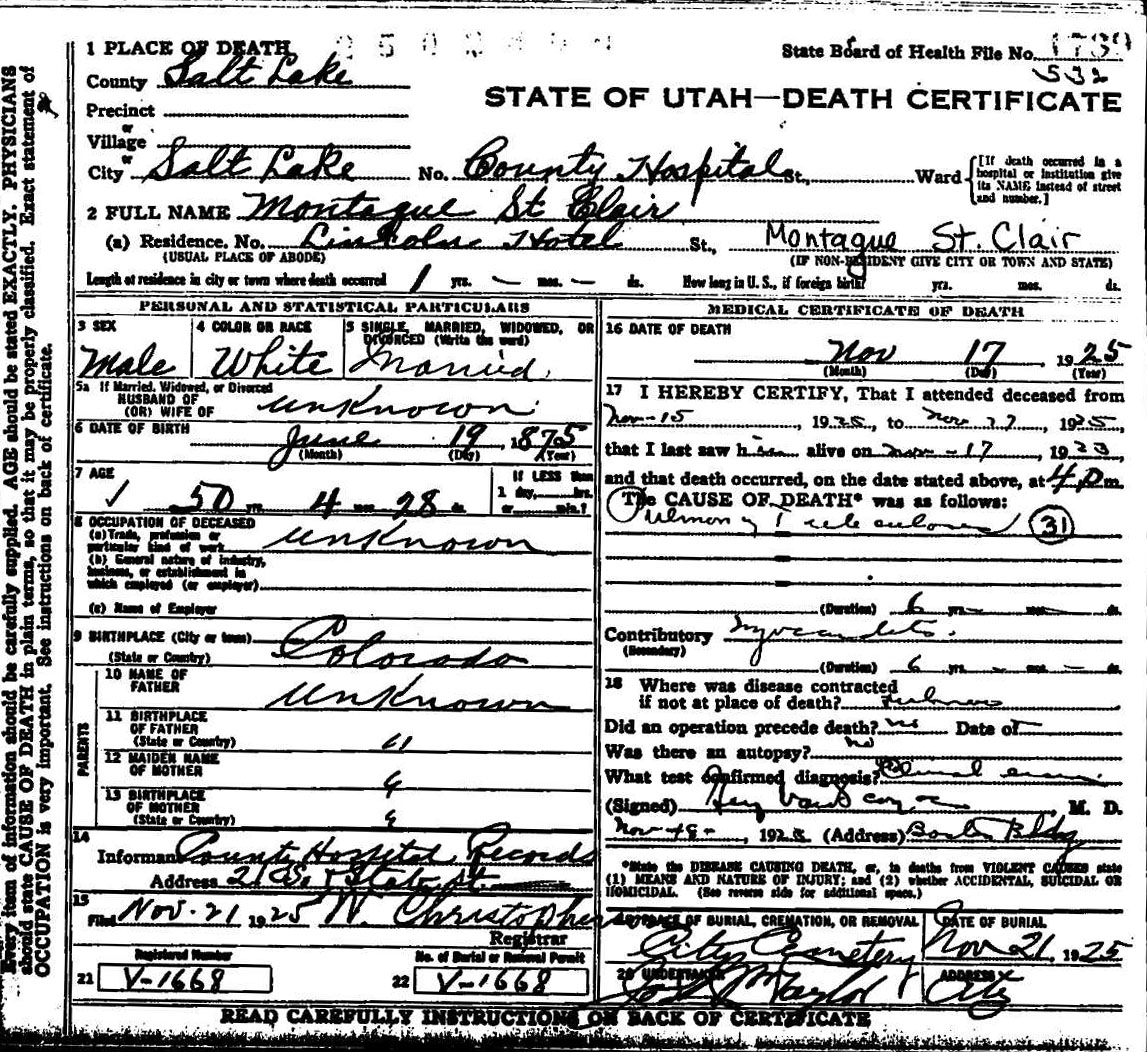 1 PLACE OF DEATH
State Board of Health File No. 1739
532
County Salt Lake
STATE OF UTAH—DEATH CERTIFICATE
Precinct
or
Village
or
City Salt Lake No. County Hospital St., Ward [If death occurred in a hospital or institution give its NAME instead of street and number.]
2 FULL NAME Montague St Clair
(a) Residence. No. Lincoln Hotel St., Montague St. Clair
(USUAL PLACE OF ABODE) (IF NON-RESIDENT GIVE CITY OR TOWN AND STATE)
Length of residence in city or town where death occurred 1 yrs. — mos. — ds. How long in U. S., if foreign birth? yrs. mos. ds.
PERSONAL AND STATISTICAL PARTICULARS
3 SEX 4 COLOR OR RACE 5 SINGLE, MARRIED, WIDOWED, OR DIVORCED (Write the word)
Male White Married.
5a If Married, Widowed, or Divorced
HUSBAND OF
(OR) WIFE OF Unknown
6 DATE OF BIRTH June 19 1875
(Month) (Day) (Year)
7 AGE If LESS than
1 50 yrs. 4 mos. 28 ds. 1 day, hrs.
or min.?
8 OCCUPATION OF DECEASED
(a) Trade, profession or
particular kind of work Unknown
(b) General nature of industry,
business, or establishment in
which employed (or employer)
(c) Name of Employer
9 BIRTHPLACE (City or town)
(State or Country) Colorado
PARENTS
10 NAME OF
FATHER Unknown
11 BIRTHPLACE
OF FATHER
(State or Country)
12 MAIDEN NAME
OF MOTHER
13 BIRTHPLACE
OF MOTHER
(State or Country)
14
Informant County Hospital Records
Address State St.
15
Filed Nov. 21 1925 W. Christopherson
Registrar
Registered Number No. of Burial or Removal Permit
21 V-1668 22 V-1668
MEDICAL CERTIFICATE OF DEATH
16 DATE OF DEATH
Nov 17, 1925
(Month) (Day) (Year)
17 I HEREBY CERTIFY, That I attended deceased from
Nov-15, 1925, to Nov 17, 1925,
that I last saw him alive on Nov-17, 1925
and that death occurred, on the date stated above, at 4 p m.
The CAUSE OF DEATH* was as follows:
Pulmonary Tuberculosis (31)
(Duration) 6 yrs. — mos. ds.
Contributory Myocarditis.
(Secondary)
(Duration) 6 yrs. - mos. - ds.
18 Where was disease contracted
if not at place of death?
Did an operation precede death? no Date of —
Was there an autopsy? no
What test confirmed diagnosis?
(Signed) M. D.
Nov-18-, 1925 (Address) Bldg
*State the DISEASE CAUSING DEATH, or, in deaths from VIOLENT CAUSES state
(1) MEANS AND NATURE OF INJURY; and (2) whether ACCIDENTAL, SUICIDAL OR
HOMICIDAL. (See reverse side for additional space.)
19 PLACE OF BURIAL, CREMATION, OR REMOVAL DATE OF BURIAL
City Cemetery Nov 21, 1925
20 UNDERTAKER ADDRESS
Taylor City
READ CAREFULLY INSTRUCTIONS ON BACK OF CERTIFICATE
Every item of information should be carefully supplied. AGE should be stated EXACTLY. PHYSICIANS
should state CAUSE OF DEATH in plain terms, so that it may be properly classified. Exact statement of
OCCUPATION is very important. See instructions on back of certificate.